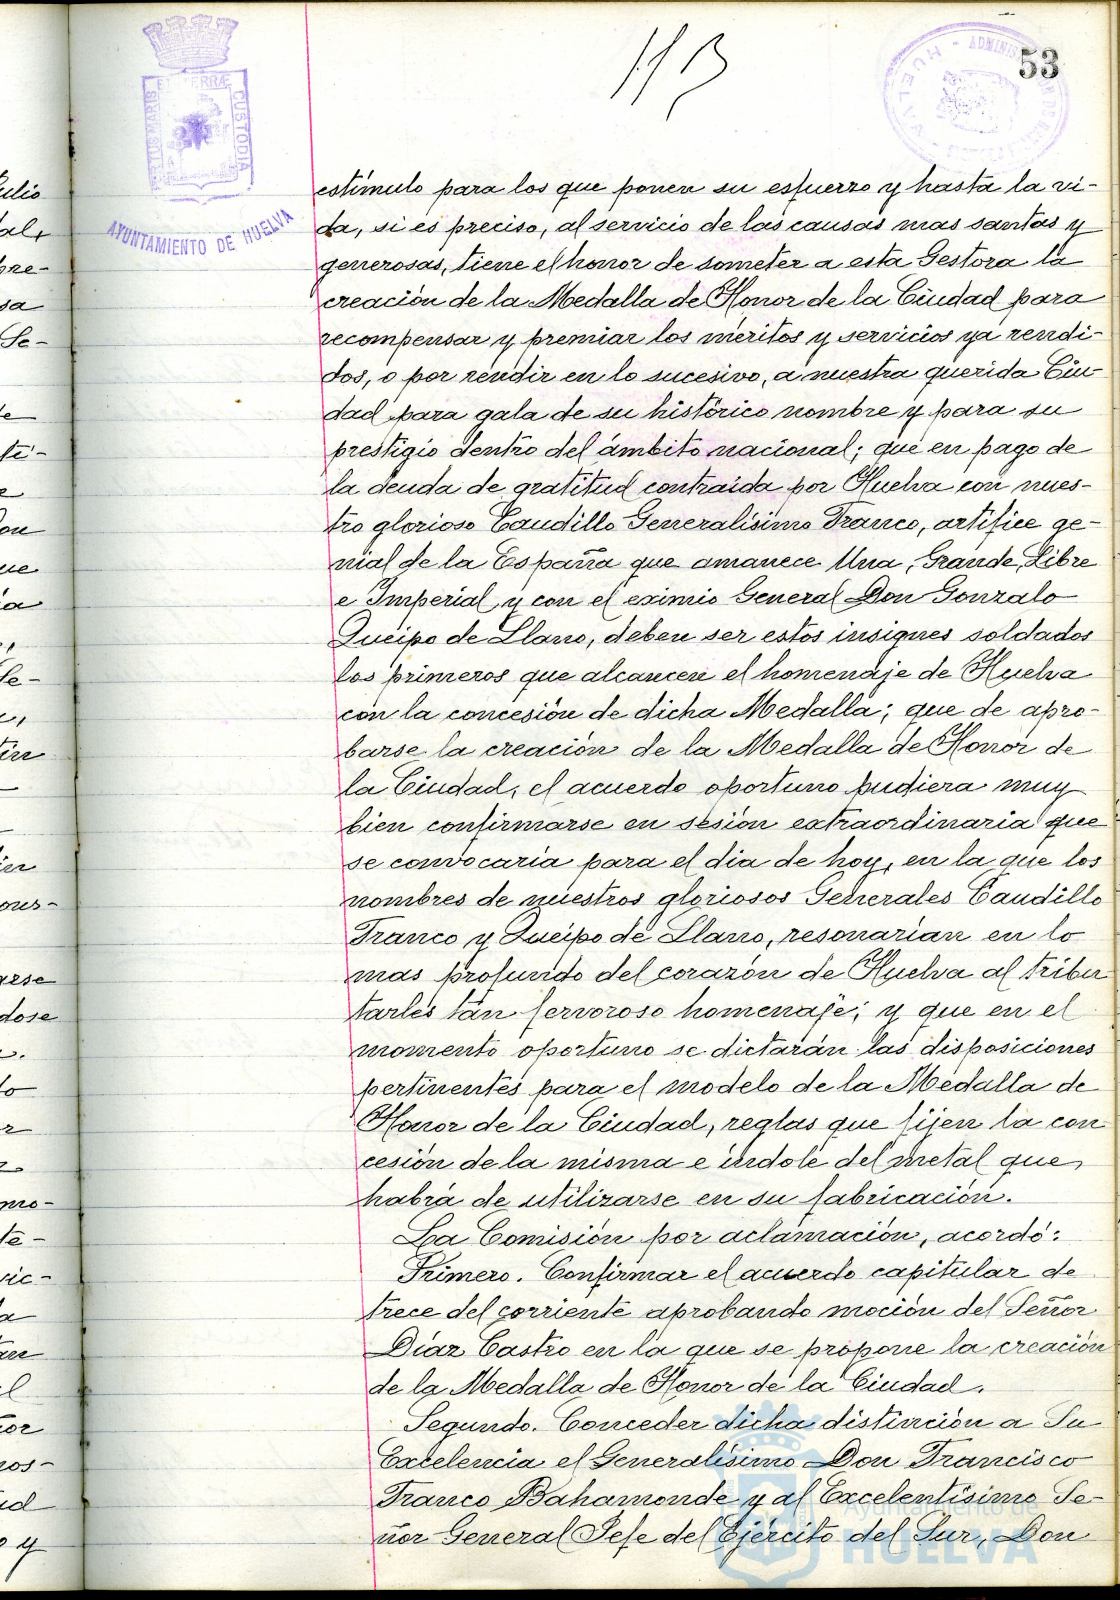 113
53
PORTUS MARIS ET TERRÆ CUSTODIA
AYUNTAMIENTO DE HUELVA
estímulo para los que ponen su esfuerzo y hasta la vi-
da, si es preciso, al servicio de las causas mas santas y
generosas, tiene el honor de someter a esta Gestora la
creación de la Medalla de Honor de la Ciudad para
recompensar y premiar los méritos y servicios ya rendi-
dos, o por rendir en lo sucesivo, a nuestra querida Ciu-
dad para gala de su histórico nombre y para su
prestigio dentro del ámbito nacional; que en pago de
la deuda de gratitud contraida por Huelva con nues-
tro glorioso Caudillo Generalísimo Franco, artífice ge-
nial de la España que amanece Una, Grande, Libre
e Imperial y con el eximio General Don Gonzalo
Queipo de Llano, deben ser estos insignes soldados
los primeros que alcancen el homenaje de Huelva
con la concesión de dicha Medalla; que de apro-
barse la creación de la Medalla de Honor de
la Ciudad, el acuerdo oportuno pudiera muy
bien confirmarse en sesión extraordinaria que
se convocaría para el dia de hoy, en la que los
nombres de nuestros gloriosos Generales Caudillo
Franco y Queipo de Llano, resonarían en lo
mas profundo del corazón de Huelva al tribu
tarles tan fervoroso homenaje; y que en el
momento oportuno se dictarán las disposiciones
pertinentes para el modelo de la Medalla de
Honor de la Ciudad, reglas que fijen la con
cesión de la misma e indole del metal que
habrá de utilizarse en su fabricación.
La Comisión por aclamación, acordó:
Primero. Confirmar el acuerdo capitular de
trece del corriente aprobando moción del Señor
Díaz Castro en la que se propone la creación
de la Medalla de Honor de la Ciudad.
Segundo. Conceder dicha distinción a Su
Excelencia el Generalísimo Don Francisco
Franco Bahamonde y al Excelentísimo Se-
ñor General Jefe del Ejército del Sur, Don
Ayuntamiento de
HUELVA